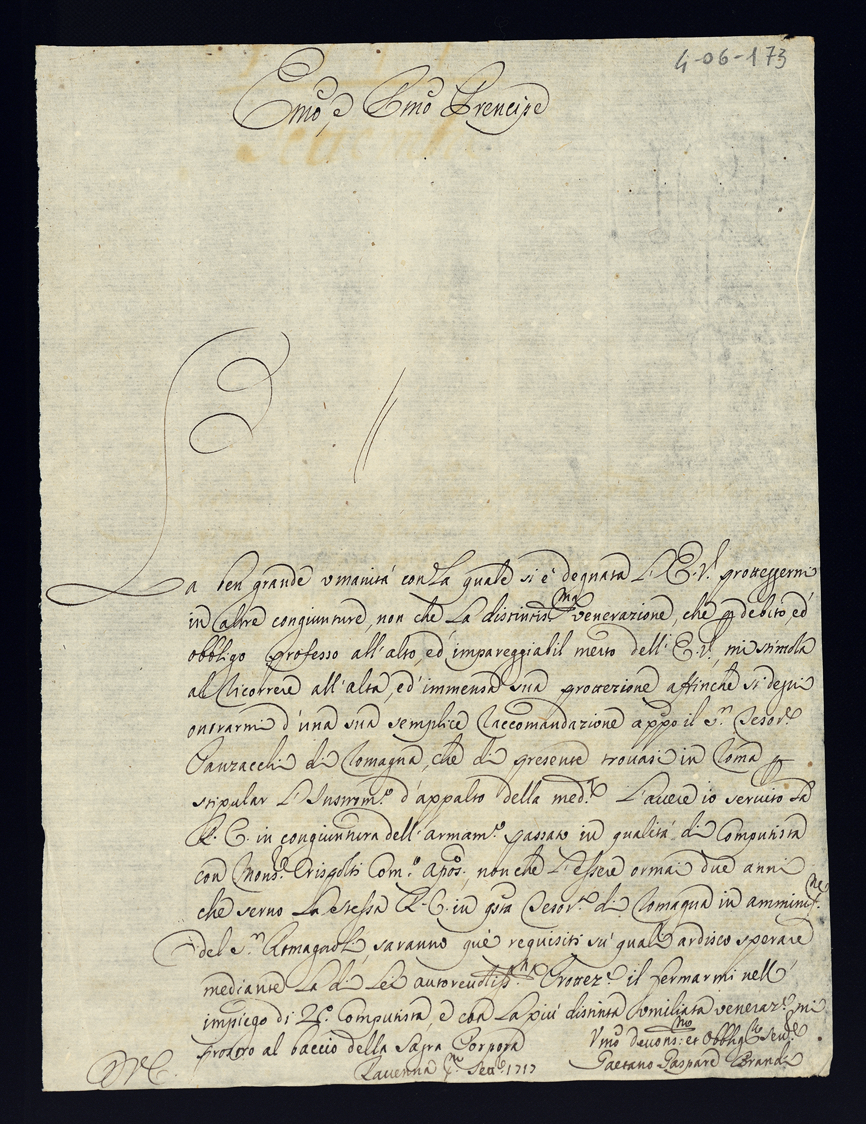 4-06-173
Emo, e Rmo Prencipe
La ben grande vmanitá con la quale si é degnata L'E.V. proteggermi
in altre congiunture, non che La distintis.ma venerazione, che p debito, ed
obbligo professo all'alto, ed' impareggiabil merto dell'E.V., mi stimola
al Ricorrere all'alta, ed' immensa sua protezione affinche si degni
onorarmi d'una sua semplice Raccomandazione appo il S.r Tesor.e
Pauzacchi di Romagna, che di presente trovasi in Roma p
stipular L'Instrom.o d'appalto della med.a L'avere io servito La
R. C. in congiuntura dell'armam.o passato in qualitá di Computista
con Mons.r Com.o Apos., non che L'essere ormai due anni
che servo La stessa R. C. in gsta Tesor.a di Romagna in amminist.ne
del S.r Romagnoli, saranno que requisiti su quali ardisco sperare
mediante La di Lei Protez.e il fermarmi nell'
impiego di 2.o Computista, e con La piú distinta umiliata veneraz.e mi
prostro al baccio della Sagra Porpora
D V E.
Ravenna Sett.e 1717
Vmo devons: et Obblig.mo Ser.e
Gaetano Gaspare Brandi